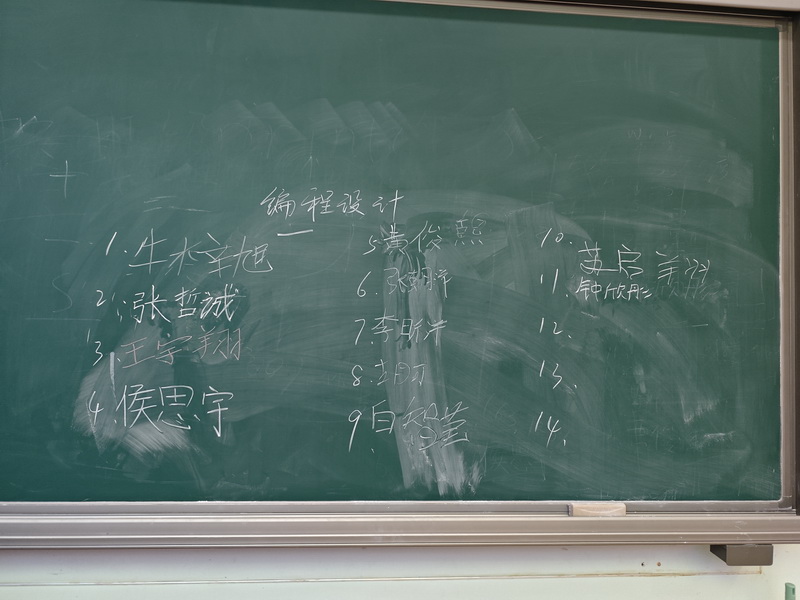 编程设计
1. 牛木辛旭
2. 张哲诚
3. 王宇翔
4. 侯思宇
5. 黄俊熙
6. 张
7. 李昕
8.
9. 白智莹
10. 苏启
11. 钟欣彤
12.
13.
14.